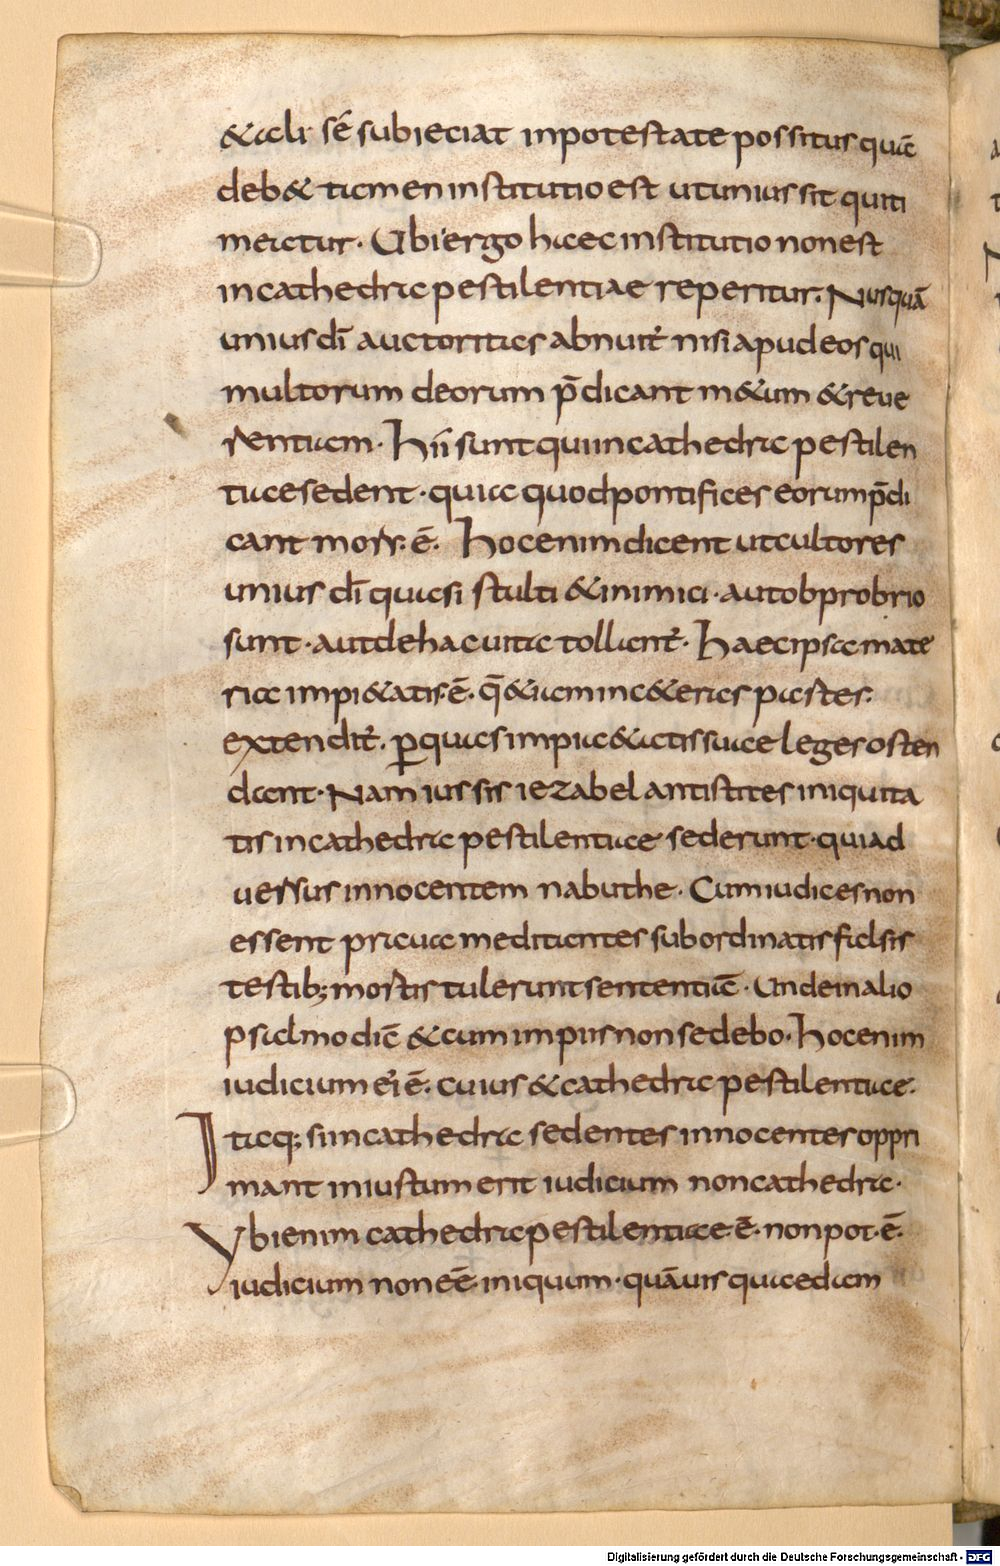 &iali sē subieciat inpotestate possitus quā
deb& tamen institutio est utunius sit quiti
meatur. Ubi ergo haec institutio non est
incathedra pestilentiae reperitur. Nusquā
unius dī auctoritas abnuit̄ nisi apudeos qui
multorum deorum p̄dicant m&um &reue
rentiam. Hii sunt qui incathedra pestilen
tiae sedent. quia quod pontifices eorum p̄di
cant mors. ē. Hoc enim dicent ut cultores
unius dī quasi stulti &inimici. aut obprobrio
sunt. aut de hac uita tollant̄. Haec ipsa mate
ria impi&atis. ē. q̄ &iam inc&eras pastes.
extendit̄. p̱quas impia &iactissuae leges osten
dant. Nam iussis iezabel antistites iniquita
tis in cathedra pestilentiae sederunt. qui ad
uersus innocentem nabuthe. Cum iudices non
essent praua meditantes subordinatis falsis
testib; mortis tulerunt sententiā. Unde in alio
psalmo dic̄ &cum impiis non sedebo. Hoc enim
iudicium ei ē. cuius &cathedra pestilentiae.
Itaq; si in cathedra sedentes innocentes oppri
mant iniustum erit iudicium non cathedra.
Ubi enim cathedra pestilentiae. ē. non pot. ē.
iudicium non eē iniquum. quāuis quaedam
Digitalisierung gefördert durch die Deutsche Forschungsgemeinschaft - DFG